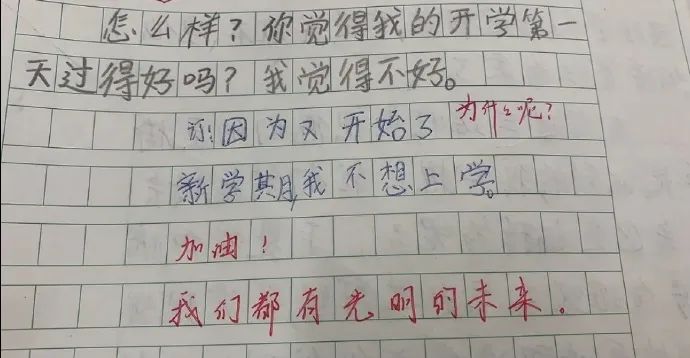 怎么样？你觉得我的开学第一
天过得好吗？我觉得不好。
为什么呢？
订：因为又开始了
新学期，我不想上学。
加油！
我们都有光明的未来。